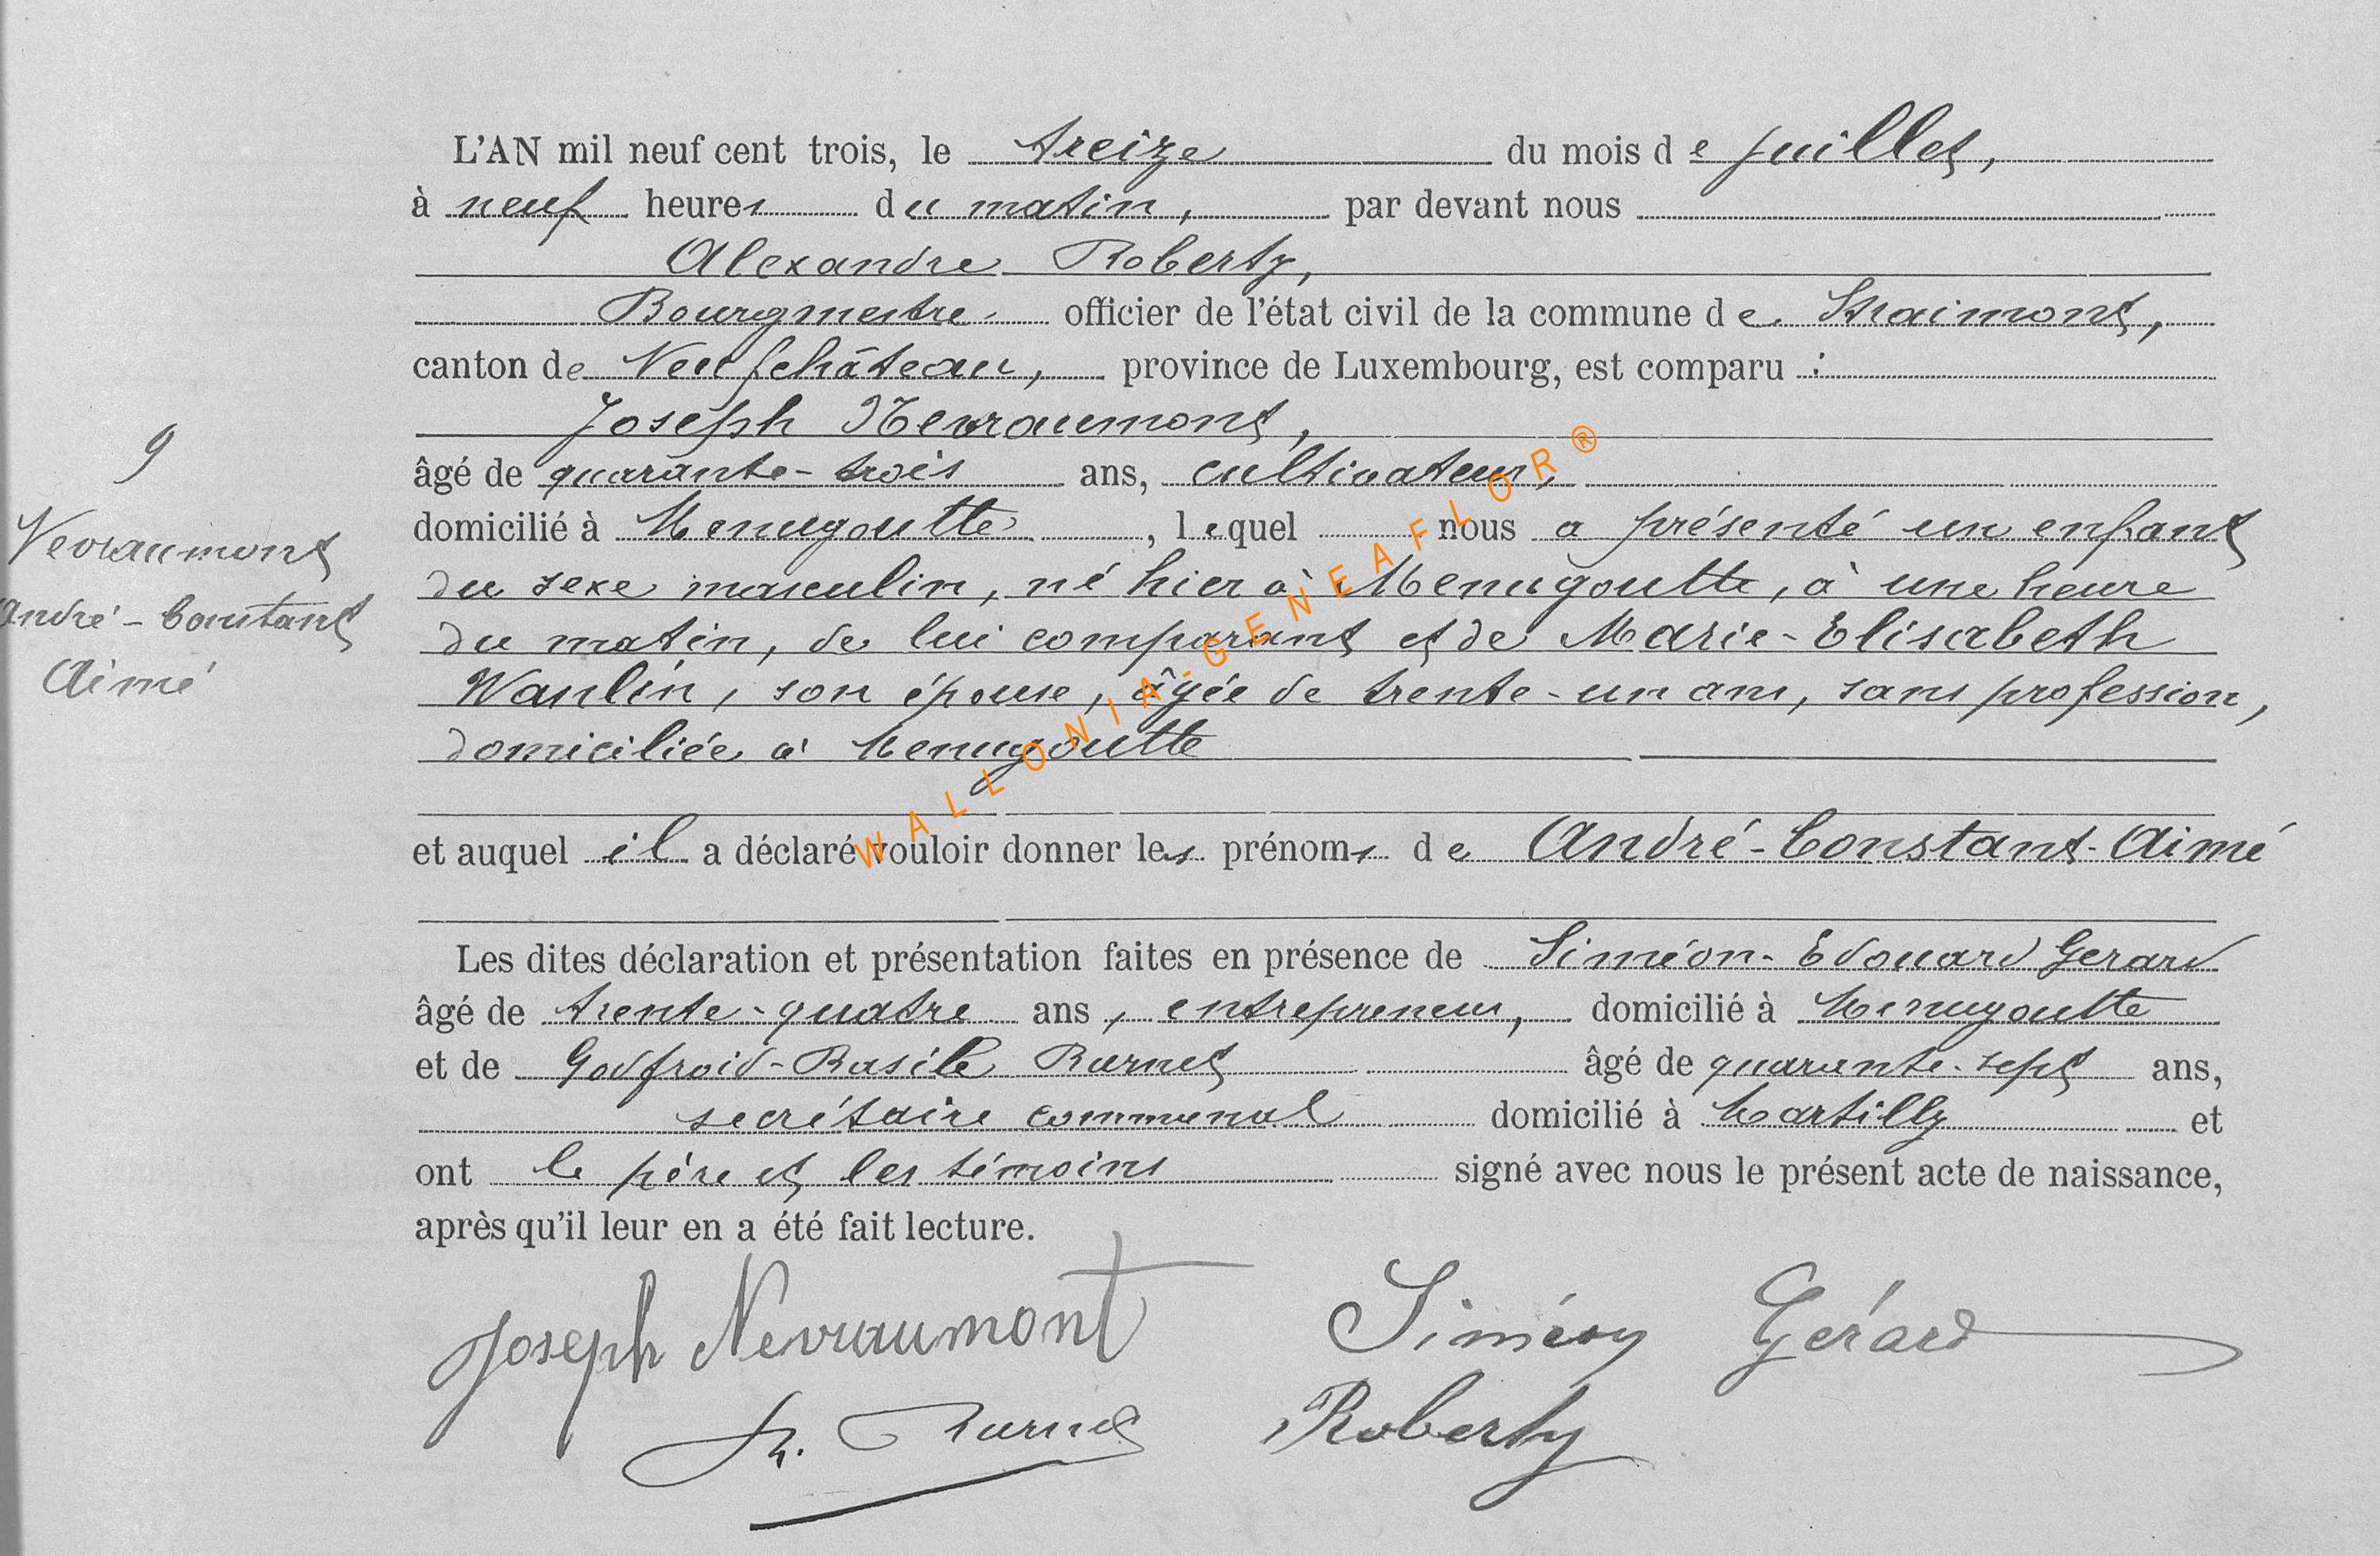 L'AN mil neuf cent trois, le treize du mois de juillet,
à neuf heures du matin, par devant nous
Alexandre Roberty,
Bourgmestre officier de l'état civil de la commune de Straimont,
canton de Neufchâteau, province de Luxembourg, est comparu :
Joseph Nevraumont,
âgé de quarante-trois ans, cultivateur,
domicilié à Menugoutte, lequel nous a présenté un enfant
du sexe masculin, né hier à Menugoutte, à une heure
du matin, de lui comparant et de Marie-Elisabeth
Wanlin, son épouse, âgée de trente-un ans, sans profession,
domiciliée à Menugoutte
et auquel il a déclaré vouloir donner les prénoms de André-Constant-Aimé
Les dites déclaration et présentation faites en présence de Siméon-Edouard Gerard
âgé de trente-quatre ans, entrepreneur, domicilié à Menugoutte
et de Godfroid-Basile Burnet âgé de quarante-sept ans,
secrétaire communal domicilié à Martilly et
ont le père et les témoins signé avec nous le présent acte de naissance,
après qu'il leur en a été fait lecture.
9
Nevraumont
André-Constant
Aimé
Joseph Nevraumont Siméon Gérard
Burnet Roberty
WALLONIA-GENEAFLOR®